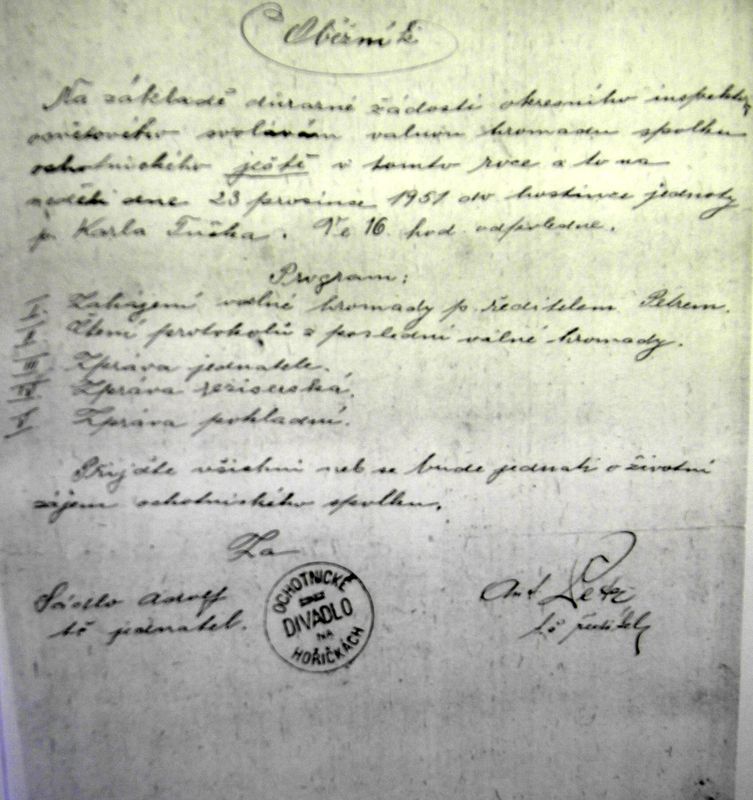 Oběžník
Na základě důrazné žádosti okresního inspektora
osvětového svolávám valnou hromadu spolku
ochotnického ještě v tomto roce a to na
neděli dne 23 prosince 1951 do hostince jednoty
p. Karla Tučka. Ve 16 hod. odpoledne.
Program:
I. Zahájení valné hromady p. ředitelem Petrem.
II. Čtení protokolů z poslední valné hromady.
III. Zpráva jednatele.
IV. Zpráva režiserská.
V. Zpráva pokladní.
Přijďte všichni neb se bude jednati o životní
zájem ochotnického spolku.
Za
Sádlo Adolf
tč jednatel.
OCHOTNICKÉ
DIVADLO
NA
HOŘIČKÁCH
Ant Petr
tč ředitel